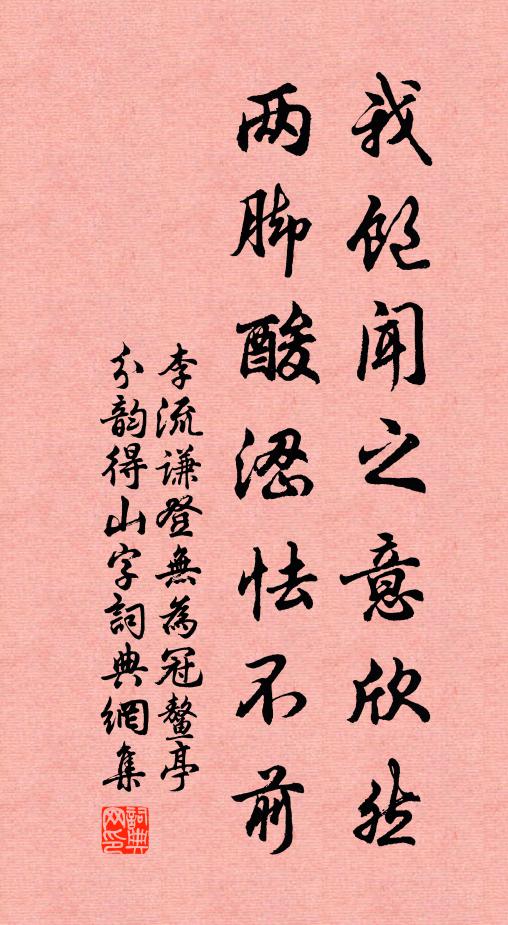 我饱闻之意欣然
两脚酸涩怯不前
李流谦登無為冠鳌亭
分韵得山字詞典網集
詞典网印